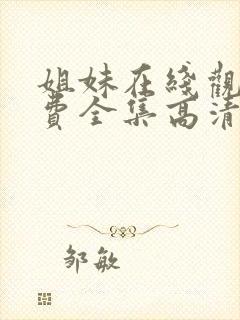 姐妹在綫觀
費全集高清
邹敏